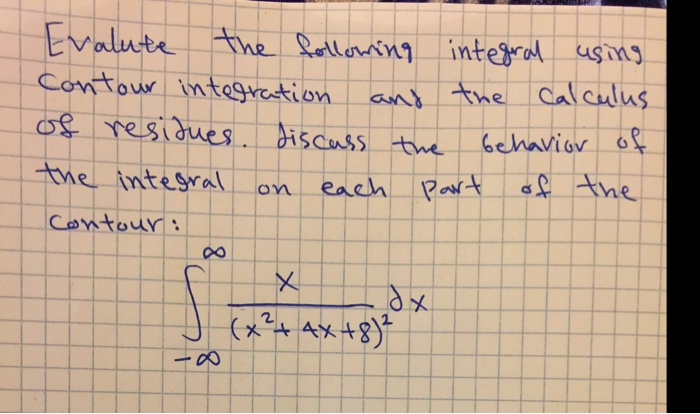 Evalute the following integral using
Contour integration and the Calculus
of residues. discuss the behavior of
the integral on each part of the
Contour:
∞
∫ x / (x² + 4x + 8)² dx
-∞